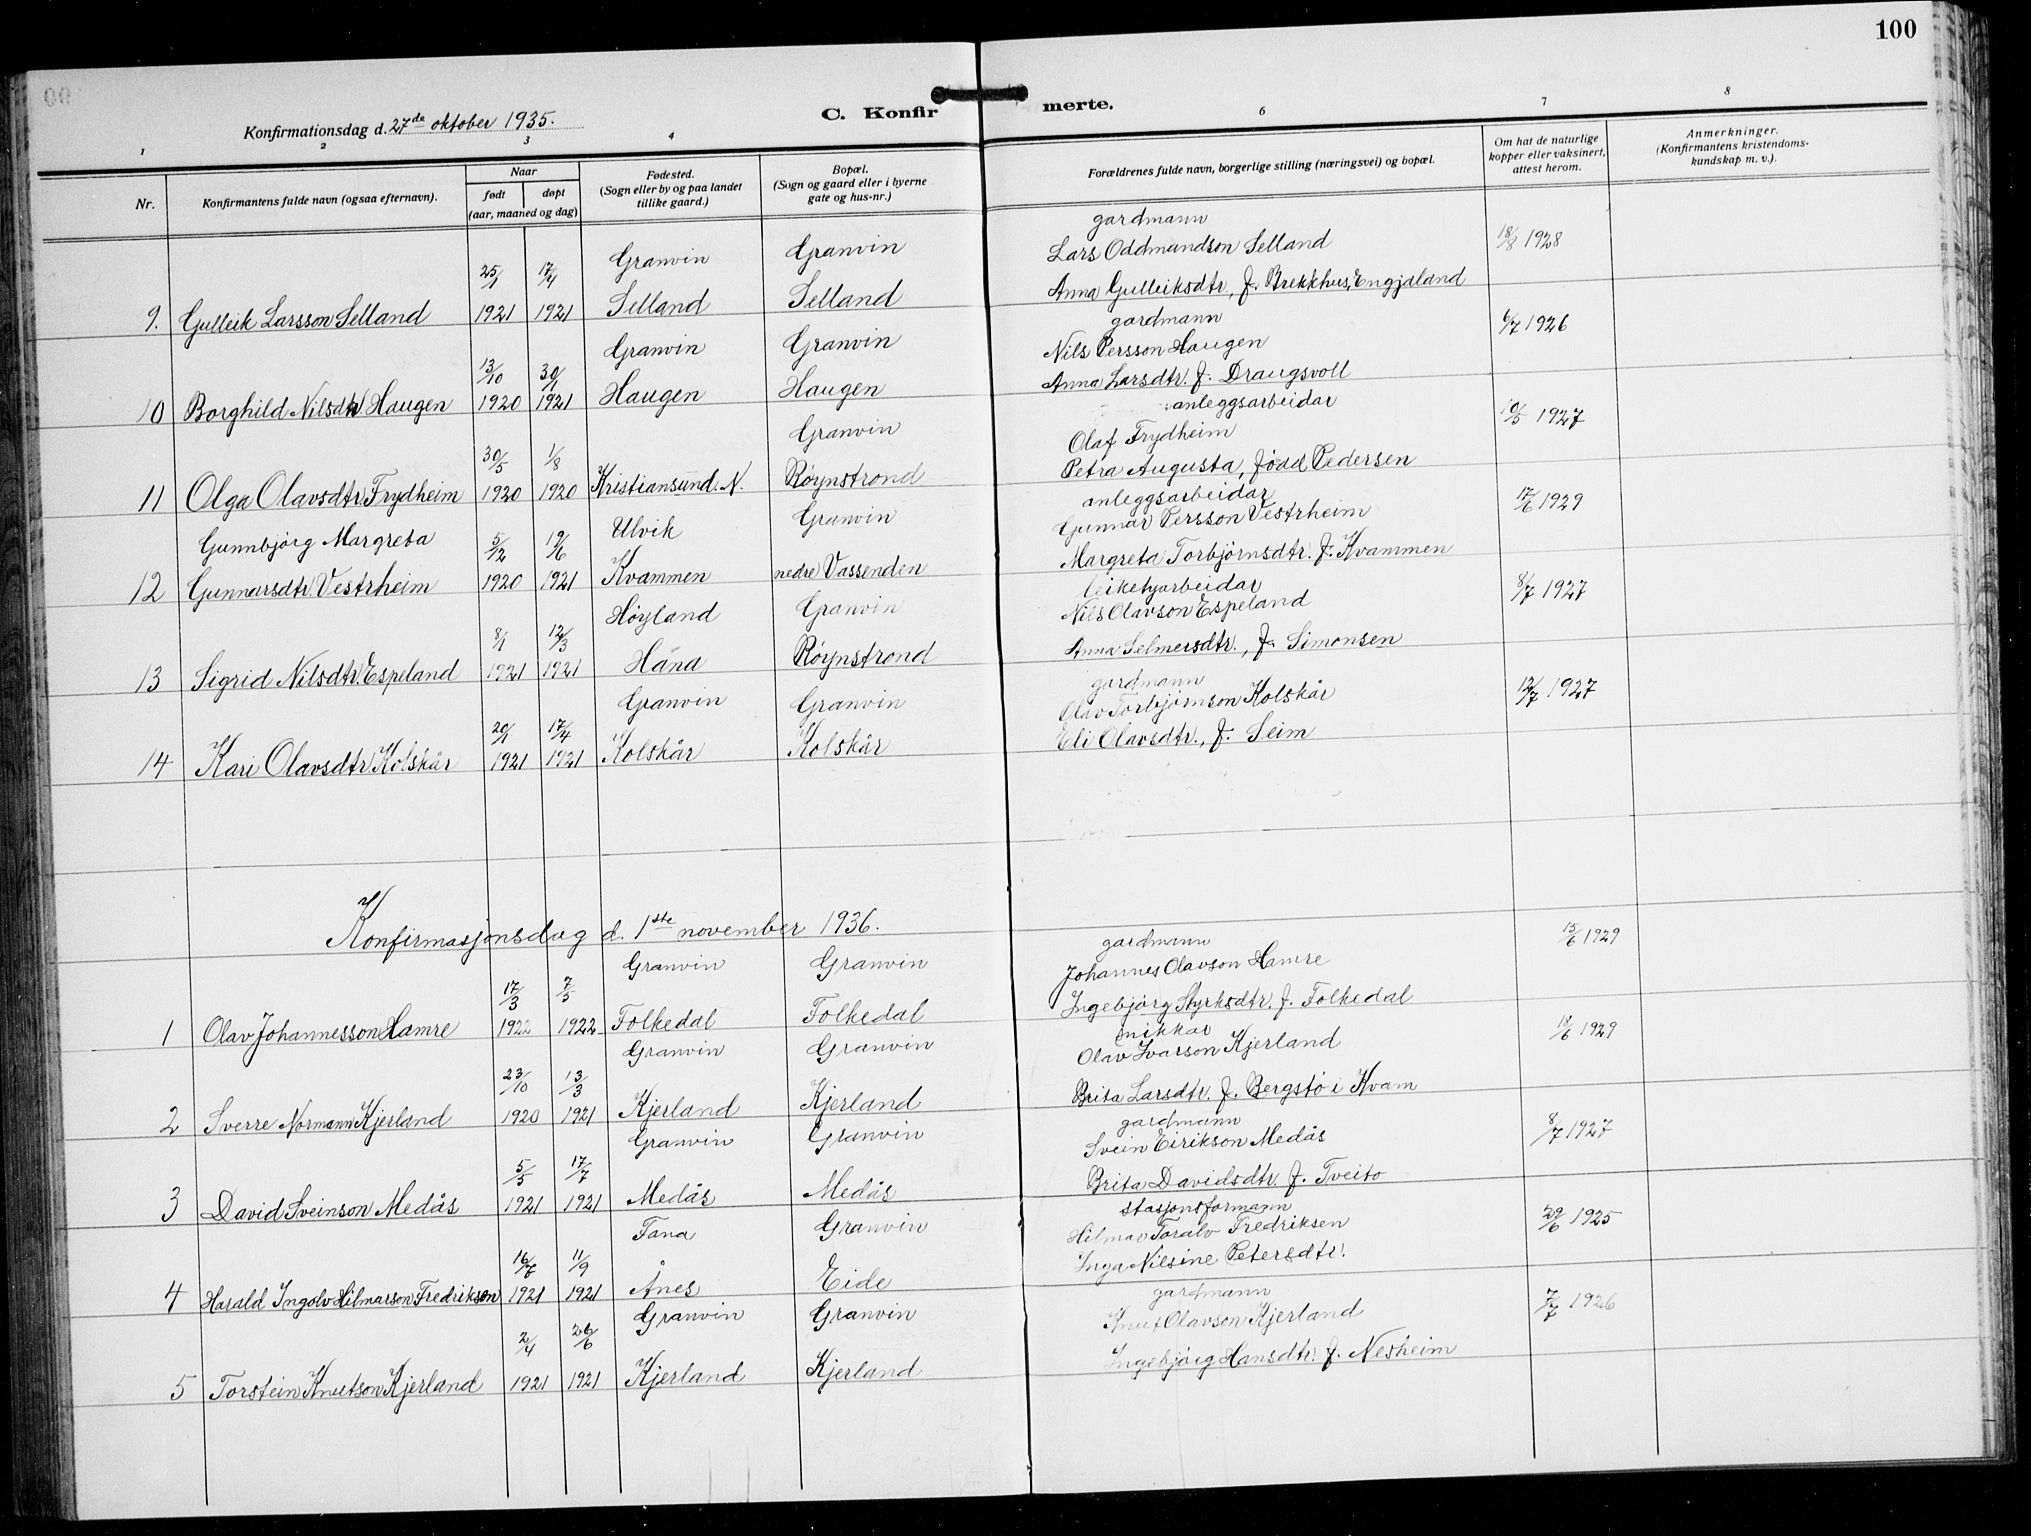 100
C. Konfirmerte.
Konfirmationsdag d. 27de oktober 1935.
1 2 3 4 6 7 8
Nr.
Konfirmantens fulde navn (ogsaa efternavn).
Naar
født døpt
(aar, maaned og dag)
Fødested.
(Sogn eller by og paa landet
tillike gaard.)
Bopæl.
(Sogn og gaard eller i byerne
gate og hus-nr.)
Forældrenes fulde navn, borgerlige stilling (næringsvei) og bopæl.
Om hat de naturlige
kopper eller vaksinert,
attest herom.
Anmerkninger.
(Konfirmantens kristendoms-
kundskap m. v.).
gardmann
25/1 17/4 Granvin Granvin Lars Oddmundson Selland 18/8 1928
9. Gulleik Larsson Selland 1921 1921 Selland Selland Anna Gulleiksdtr, f. Brekkhus, Engjaland
gardmann
13/10 30/1 Granvin Granvin Nils Persson Haugen 6/7 1926
10 Borghild Nilsdtr Haugen 1920 1921 Haugen Haugen Anna Larsdtr. f. Draugsvoll
anleggsarbeidar
30/5 1/8 Granvin Olaf Frydheim 10/5 1927
11 Olga Olavsdtr. Frydheim 1920 1920 Kristiansund. N. Røynstrond Petra Augusta, fødd Pedersen
anleggsarbeidar
Gunnbjørg Margreta 5/12 19/6 Ulvik Granvin Gunnar Persson Vestrheim 17/6 1929
12 Gunnarsdtr. Vestrheim 1920 1921 Kvammen nedre Vassenden Margreta Torbjørnsdtr. f. Kvammen
leiketyarbeidar
8/1 12/3 Høyland Granvin Nils Olavson Espeland 8/7 1927
13 Sigrid Nilsdtr. Espeland 1921 1921 Hana Røynstrond Anna Selmersdtr., f. Simonsen
gardmann
20/1 17/4 Granvin Granvin Olav Torbjørnson Kolskår 12/7 1927
14 Kari Olavsdtr. Kolskår 1921 1921 Kolskår Kolskår Eli Olavsdtr., f. Seim
Konfirmasjonsdag d. 1ste november 1936.
gardmann
17/3 7/5 Granvin Granvin Johannes Olavson Hamre 15/6 1929
1 Olav Johannesson Hamre 1922 1922 Folkedal Folkedal Ingebjørg Styrksdtr. f. Folkedal
snikkar
23/10 13/3 Granvin Granvin Olav Ivarson Kjerland 18/6 1929
2 Sverre Normann Kjerland 1920 1921 Kjerland Kjerland Brita Larsdtr. f. Bergstø i Kvam
gardmann
5/5 17/7 Granvin Granvin Svein Eirikson Medås 8/7 1927
3 David Sveinson Medås 1921 1921 Medås Medås Brita Davidsdtr. f. Tveito
stasjonsformann
16/7 11/9 Fana Granvin Hilmar Toralv Fredriksen 29/6 1925
4 Harald Ingolv Hilmarson Fredriksen 1921 1921 Ånes Eide Inga Nilsine Petersdtr.
gardmann
2/4 26/6 Granvin Granvin Knut Olavson Kjerland 7/7 1926
5 Torstein Knutson Kjerland 1921 1921 Kjerland Kjerland Ingebjørg Hansdtr. f. Nesheim